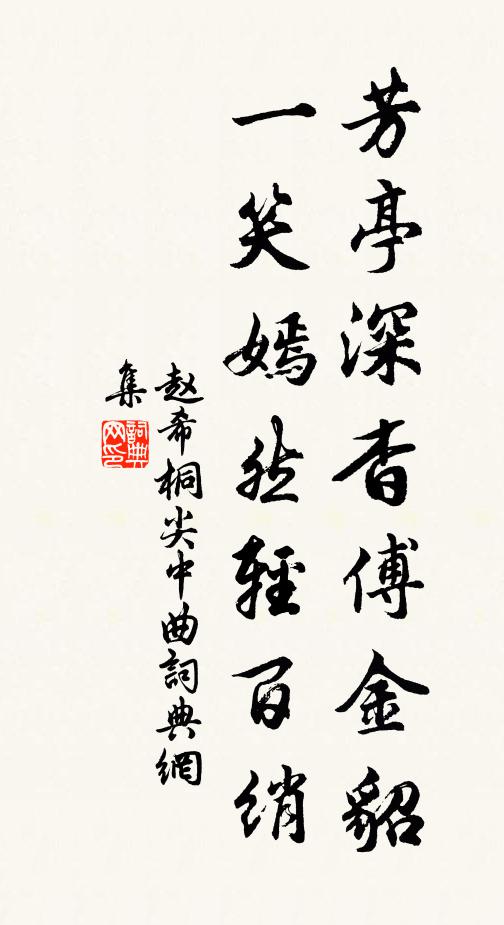 芳亭深杳傅金貂
一笑嫣然輕百绡
赵希桐尖中曲詞典網
集
詞典
网印